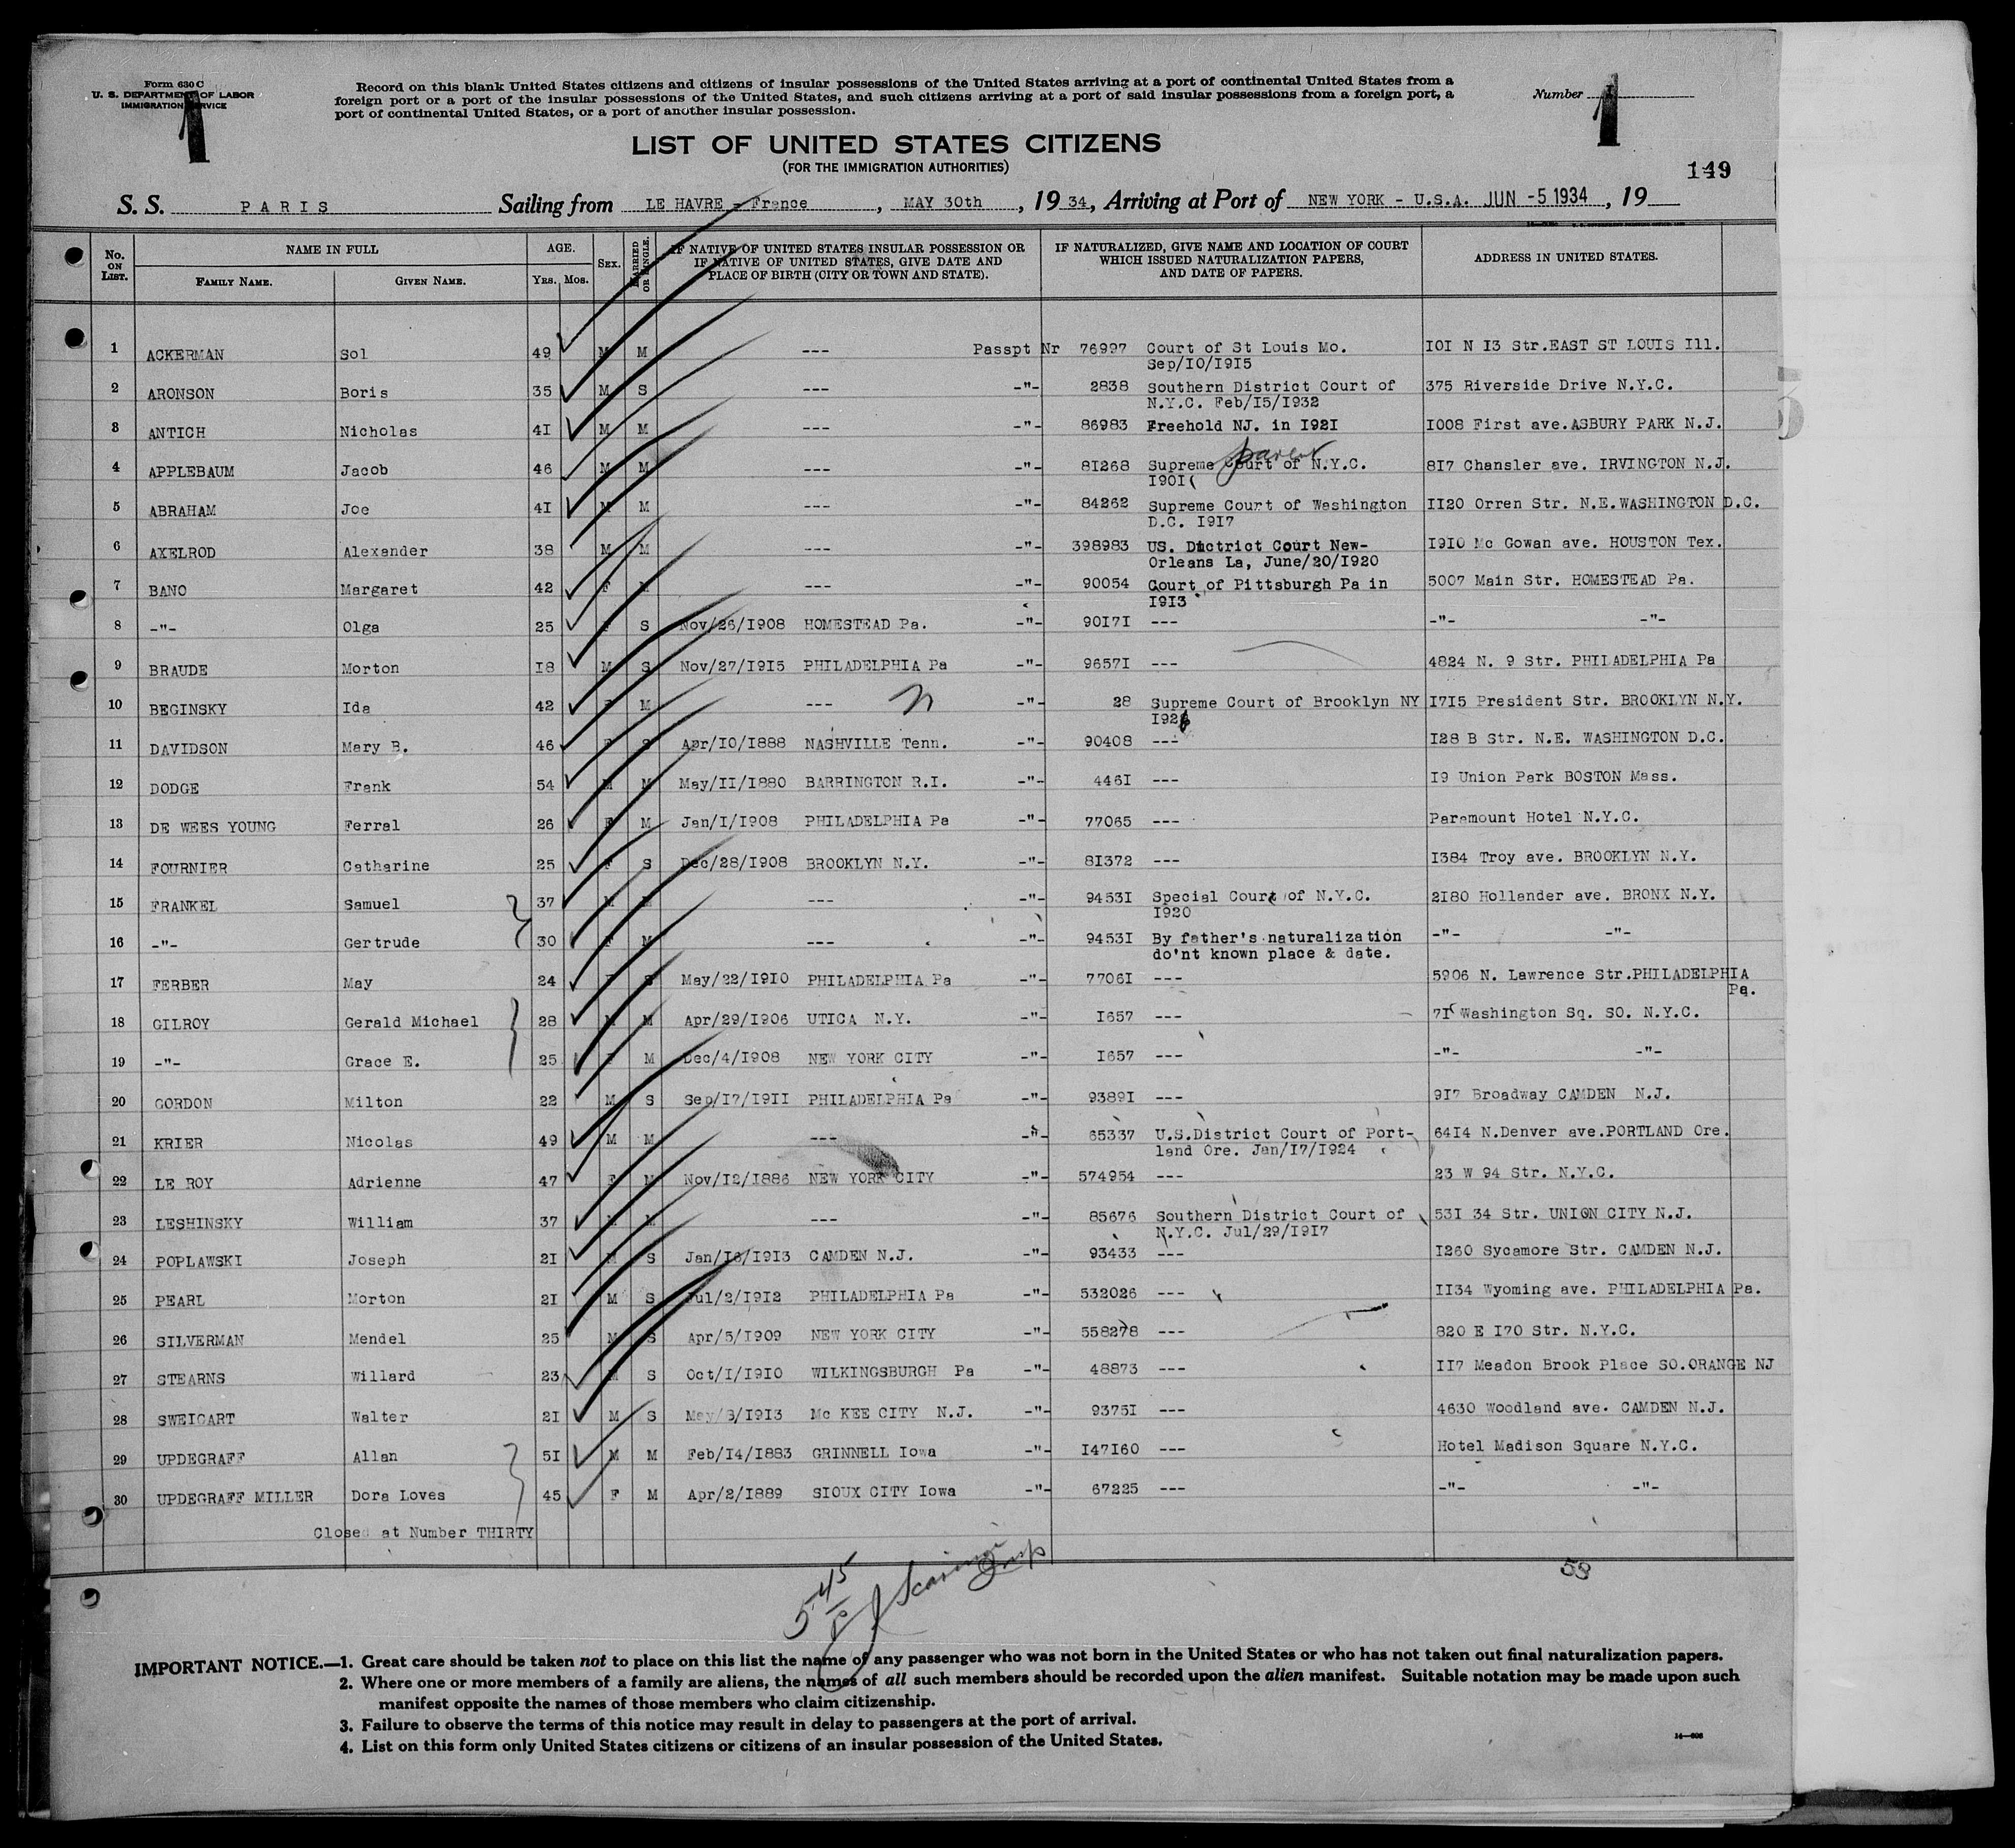 Form 630 C
U. S. DEPARTMENT OF LABOR
IMMIGRATION SERVICE
Record on this blank United States citizens and citizens of insular possessions of the United States arriving at a port of continental United States from a
foreign port or a port of the insular possessions of the United States, and such citizens arriving at a port of said insular possessions from a foreign port, a
port of continental United States, or a port of another insular possession.
Number 1
1
LIST OF UNITED STATES CITIZENS
(FOR THE IMMIGRATION AUTHORITIES)
149
S. S. PARIS Sailing from LE HAVRE - France, MAY 30th, 1934, Arriving at Port of NEW YORK - U.S.A. JUN -5 1934, 19
No. ON LIST. NAME IN FULL FAMILY NAME. GIVEN NAME. AGE. YRS. MOS. SEX. MARRIED OR SINGLE. IF NATIVE OF UNITED STATES INSULAR POSSESSION OR IF NATIVE OF UNITED STATES, GIVE DATE AND PLACE OF BIRTH (CITY OR TOWN AND STATE). IF NATURALIZED, GIVE NAME AND LOCATION OF COURT WHICH ISSUED NATURALIZATION PAPERS, AND DATE OF PAPERS. ADDRESS IN UNITED STATES.
1 ACKERMAN Sol 49 M M --- Passpt Nr 76997 Court of St Louis Mo. IOI N I3 Str.EAST ST LOUIS Ill.
Sep/IO/I9I5
2 ARONSON Boris 35 M S --- -"- 2838 Southern District Court of 375 Riverside Drive N.Y.C.
N.Y.C. Feb/I5/I932
3 ANTICH Nicholas 4I M M --- -"- 86983 Freehold NJ. in I92I I008 First ave.ASBURY PARK N.J.
parent
4 APPLEBAUM Jacob 46 M M --- -"- 8I268 Supreme Court of N.Y.C. 8I7 Chansler ave. IRVINGTON N.J.
I90I
5 ABRAHAM Joe 4I M M --- -"- 84262 Supreme Court of Washington II20 Orren Str. N.E.WASHINGTON D.C.
D.C. I9I7
6 AXELROD Alexander 38 M M --- -"- 398983 US. Dictrict Court New- I9I0 Mc Gowan ave. HOUSTON Tex.
Orleans La, June/20/I920
7 BANO Margaret 42 F M --- -"- 90054 Court of Pittsburgh Pa in 5007 Main Str. HOMESTEAD Pa.
I9I3
8 -"- Olga 25 F S Nov/26/I908 HOMESTEAD Pa. -"- 90I7I --- -"- -"-
9 BRAUDE Morton I8 M S Nov/27/I9I5 PHILADELPHIA Pa -"- 9657I --- 4824 N. 9 Str. PHILADELPHIA Pa
10 BEGINSKY Ida 42 F M --- n -"- 28 Supreme Court of Brooklyn NY I7I5 President Str. BROOKLYN N.Y.
I926
11 DAVIDSON Mary B. 46 F S Apr/I0/I888 NASHVILLE Tenn. -"- 90408 --- I28 B Str. N.E. WASHINGTON D.C.
12 DODGE Frank 54 M M May/II/I880 BARRINGTON R.I. -"- 446I --- I9 Union Park BOSTON Mass.
13 DE WEES YOUNG Ferral 26 F M Jan/I/I908 PHILADELPHIA Pa -"- 77065 --- Paramount Hotel N.Y.C.
14 FOURNIER Catharine 25 F S Dec/28/I908 BROOKLYN N.Y. -"- 8I372 --- I384 Troy ave. BROOKLYN N.Y.
15 FRANKEL Samuel 37 M M --- -"- 9453I Special Court of N.Y.C. 2I80 Hollander ave. BRONX N.Y.
I920
16 -"- Gertrude 30 F M --- -"- 9453I By father's naturalization -"- -"-
do'nt known place & date.
17 FERBER May 24 F S May/22/I9I0 PHILADELPHIA Pa -"- 7706I --- 5906 N. Lawrence Str.PHILADELPHIA
Pa.
18 GILROY Gerald Michael 28 M M Apr/29/I906 UTICA N.Y. -"- I657 --- 7I Washington Sq. SO. N.Y.C.
19 -"- Grace E. 25 F M Dec/4/I908 NEW YORK CITY -"- I657 --- -"- -"-
20 GORDON Milton 22 M S Sep/I7/I9II PHILADELPHIA Pa -"- 9389I --- 9I7 Broadway CAMDEN N.J.
21 KRIER Nicolas 49 M M --- -"- 65337 U.S.District Court of Port- 64I4 N.Denver ave.PORTLAND Ore.
land Ore. Jan/I7/I924
22 LE ROY Adrienne 47 F M Nov/I2/I886 NEW YORK CITY -"- 574954 --- 23 W 94 Str. N.Y.C.
23 LESHINSKY William 37 M M --- -"- 85676 Southern District Court of 53I 34 Str. UNION CITY N.J.
N.Y.C. Jul/29/I9I7
24 POPLAWSKI Joseph 2I M S Jan/I6/I9I3 CAMDEN N.J. -"- 93433 --- I260 Sycamore Str. CAMDEN N.J.
25 PEARL Morton 2I M S Jul/2/I9I2 PHILADELPHIA Pa -"- 532026 --- II34 Wyoming ave. PHILADELPHIA Pa.
26 SILVERMAN Mendel 25 M S Apr/5/I909 NEW YORK CITY -"- 558278 --- 820 E I70 Str. N.Y.C.
27 STEARNS Willard 23 M S Oct/I/I9I0 WILKINGSBURGH Pa -"- 48873 --- II7 Meadon Brook Place SO.ORANGE NJ
28 SWEIGART Walter 2I M S May/8/I9I3 Mc KEE CITY N.J. -"- 9375I --- 4630 Woodland ave. CAMDEN N.J.
29 UPDEGRAFF Allan 5I M M Feb/I4/I883 GRINNELL Iowa -"- I47I60 --- Hotel Madison Square N.Y.C.
30 UPDEGRAFF MILLER Dora Loves 45 F M Apr/2/I889 SIOUX CITY Iowa -"- 67225 --- -"- -"-
Closed at Number THIRTY
58
545
IMPORTANT NOTICE.—1. Great care should be taken not to place on this list the name of any passenger who was not born in the United States or who has not taken out final naturalization papers.
2. Where one or more members of a family are aliens, the names of all such members should be recorded upon the alien manifest. Suitable notation may be made upon such
manifest opposite the names of those members who claim citizenship.
3. Failure to observe the terms of this notice may result in delay to passengers at the port of arrival.
4. List on this form only United States citizens or citizens of an insular possession of the United States.